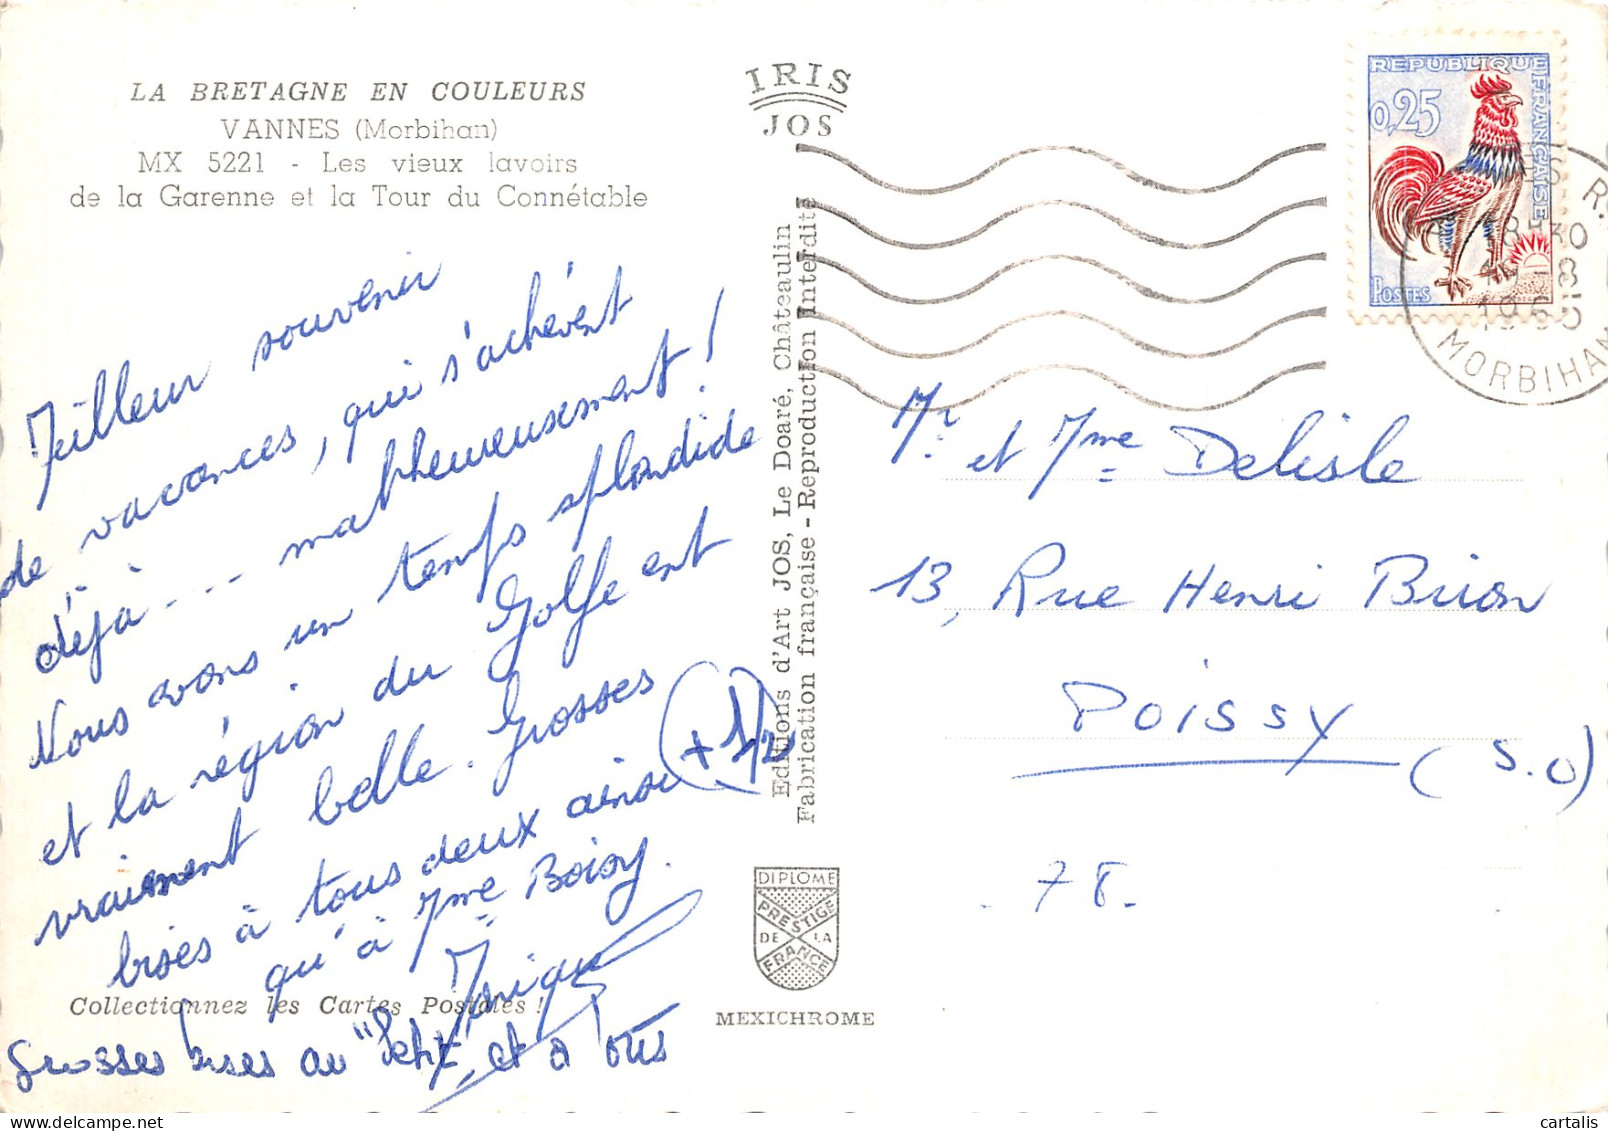 LA BRETAGNE EN COULEURS
VANNES (Morbihan)
MX 5221 - Les vieux lavoirs
de la Garenne et la Tour du Connétable
IRIS
JOS
REPUBLIQUE
FRANÇAISE
0,25
POSTES
18H30
-8
1965
MORBIHAN
Meilleur souvenir
de vacances, qui s'achèvent
déjà --- malheureusement !
Nous avons un temps splendide
et la région du Golfe est
vraiment belle. Grosses
bises à tous deux ainsi (+ 1/2)
qu'à Mme
Grosses bises au "Petit" et à
Collectionnez les Cartes Postales !
Editions d'Art JOS, Le Doaré, Châteaulin
Fabrication française - Reproduction Interdite
Mr et Mme Delisle
13, Rue Henri Brion
Poissy
(S.O)
- 78 -
DIPLOME
PRESTIGE
DE LA
FRANCE
MEXICHROME
cartalis